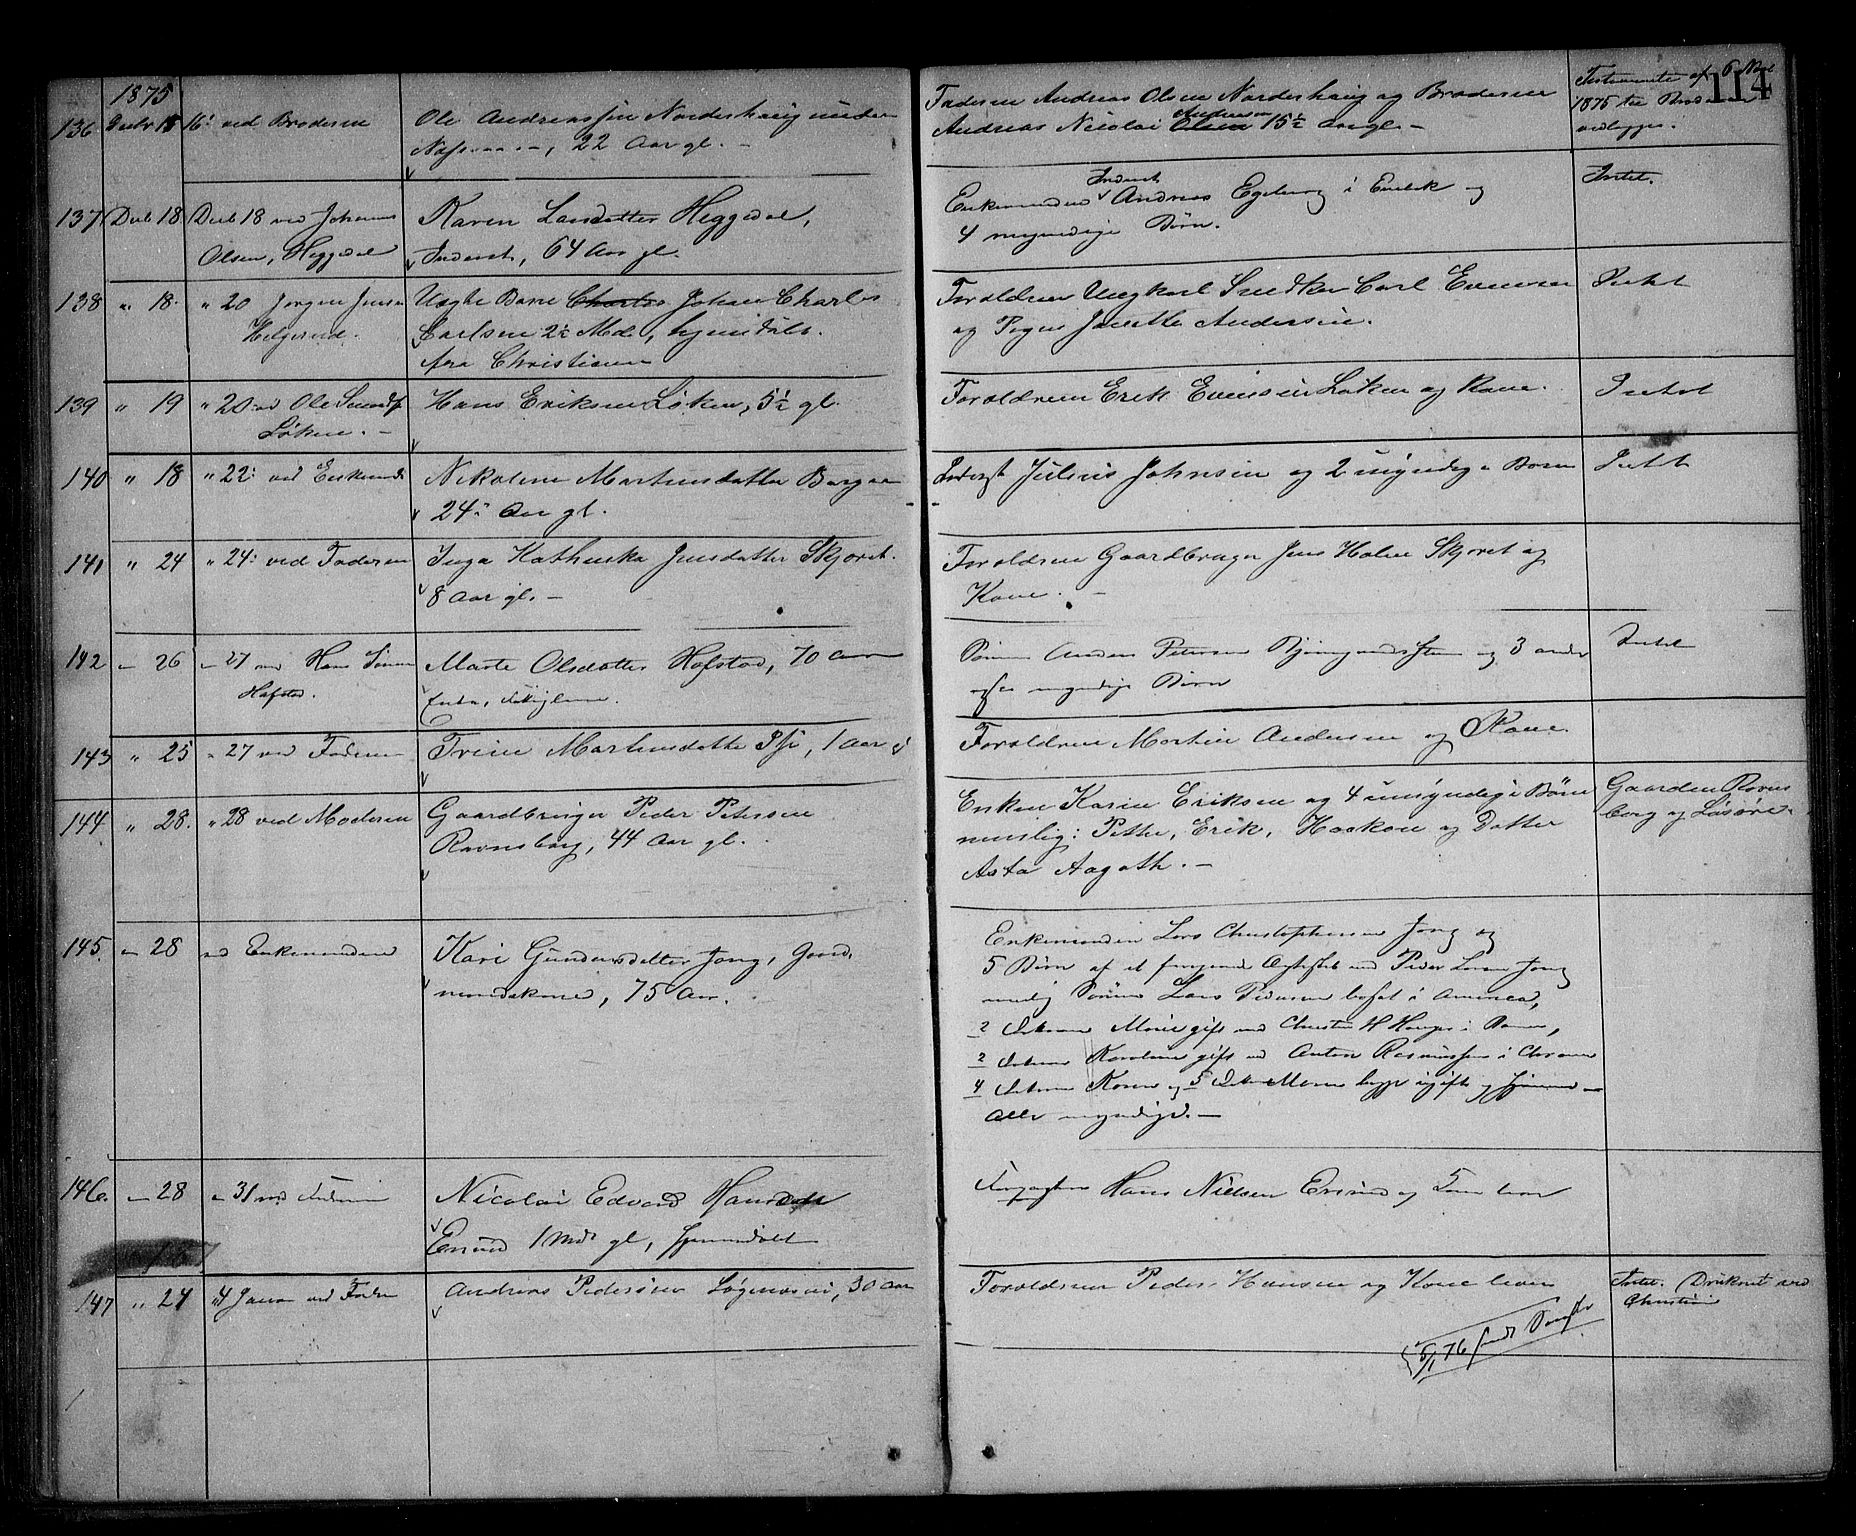 114
1875
136 Decbr 15 16: ved Broderen Ole Andreassen Nordeshaug under
22 Aar gl. -
Faderen Andreas Olsen Nordeshaug og Broderen
Andreas Nicolai Olsen Andersen 15½ Aar gl. -
Testamente af 6 Nov
1875 til Broderen
vedlægges.
137 Decb 18 Decb 18 ved Johannes
Olsen, Heggedal
Karen Larsdatter Heggedal,
Inderst, 64 Aar gl.
Enkemanden Inderst Andreas Egeberg i og
4 myndige Børn.
Intet.
138 " 18. " 20 Jørgen Jensen
Uægte Barn Charles Johan Charles
Carlsen 2½ Md,
fra Christiania
Forældrene Ungkarl Snedker Carl Evensen
og Pigen Janette Andersen.
Intet
139 " 19 " 20 ved Ole
Løken. -
Hans Eriksen Løken, 5½ gl.
Forældrene Erik Evensen Løken og Kone.
Intet
140 " 18 " 22: ved Enkemand
Nikoline Martinsdatter
24 Aar gl.
Inderst Julius Johnsen og 2 umyndige Børn
Intet
141 " 24 " 24: ved Faderen
Inga Kathinka Jensdatter Skjøret.
8 Aar gl. -
Forældrene Gaardbruger Jens Halvr Skjøret og
Kone. -
142 - 26 - 27 ved Hans
Hafstad.
Marte Olsdatter Hafstad, 70 Aar
Enke,
Sønnen Anders Petersen og 3 andre
ogsaa myndige Børn
Intet
143 " 25 " 27 ved Faderen
Trine Martinsdatter 1 Aar gl
Forældrene Martin Andersen og Kone.
144 " 28. " 28 ved Moderen
Gaardbruger Peder Petersen
Ravnsborg, 44 Aar gl.
Enken Karen Eriksen og 4 umyndige Børn
nemlig: Petter, Erik, Haakon og Datter
Asta Aagoth. -
Gaarden Ravns
borg og Løsøre.
145. - 28 ved Enkemanden
Kari Gundersdatter Jong, Gaard,
mandskone, 75 Aar.
Enkemanden Lars Christophersen Jong og
5 Børn af et foregaaende Ægteskab med Peder Larsen Jong
nemlig Sønnen Lars Pedersen bosat i America,
2 Datteren Marie gift med Christen H Hauger i
3 Datteren Karoline gift med Anton Rasmussen i
4 Datteren Karen og 5 Datter Maren begge ugifte og hjemme -
Alle myndige. -
146. - 28 - 31 ved Faderen
Nicolai Edvard Hansen
1 Md gl, hjemmedøbt
Hans Nielsen og
147 " 24 4 Janr ved Faderen
Andreas Pedersen 30 Aar
Forældrene Peder Hansen og Kone lever
Intet. Druknet ved
Christiania
5/1 76 sendt